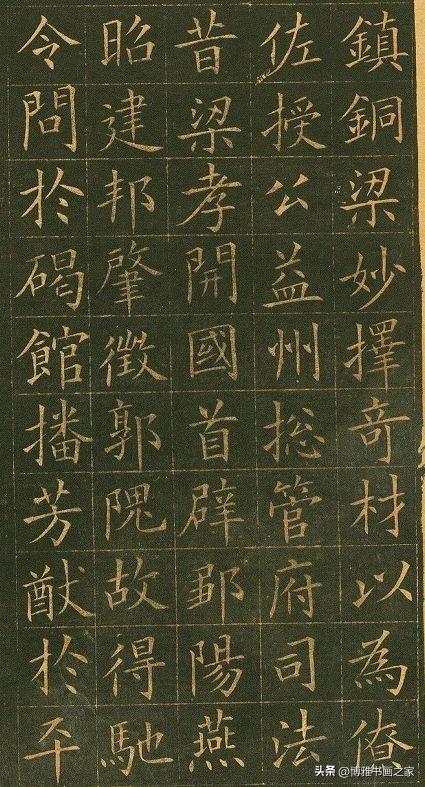 鎮銅梁妙擇奇材以為僚
佐授公益州揔管府司法
昔梁孝開國首辟鄒陽燕
昭建邦肇徵郭隗故得馳
令問於碣館播芳猷於平
头条 @博雅书画之家